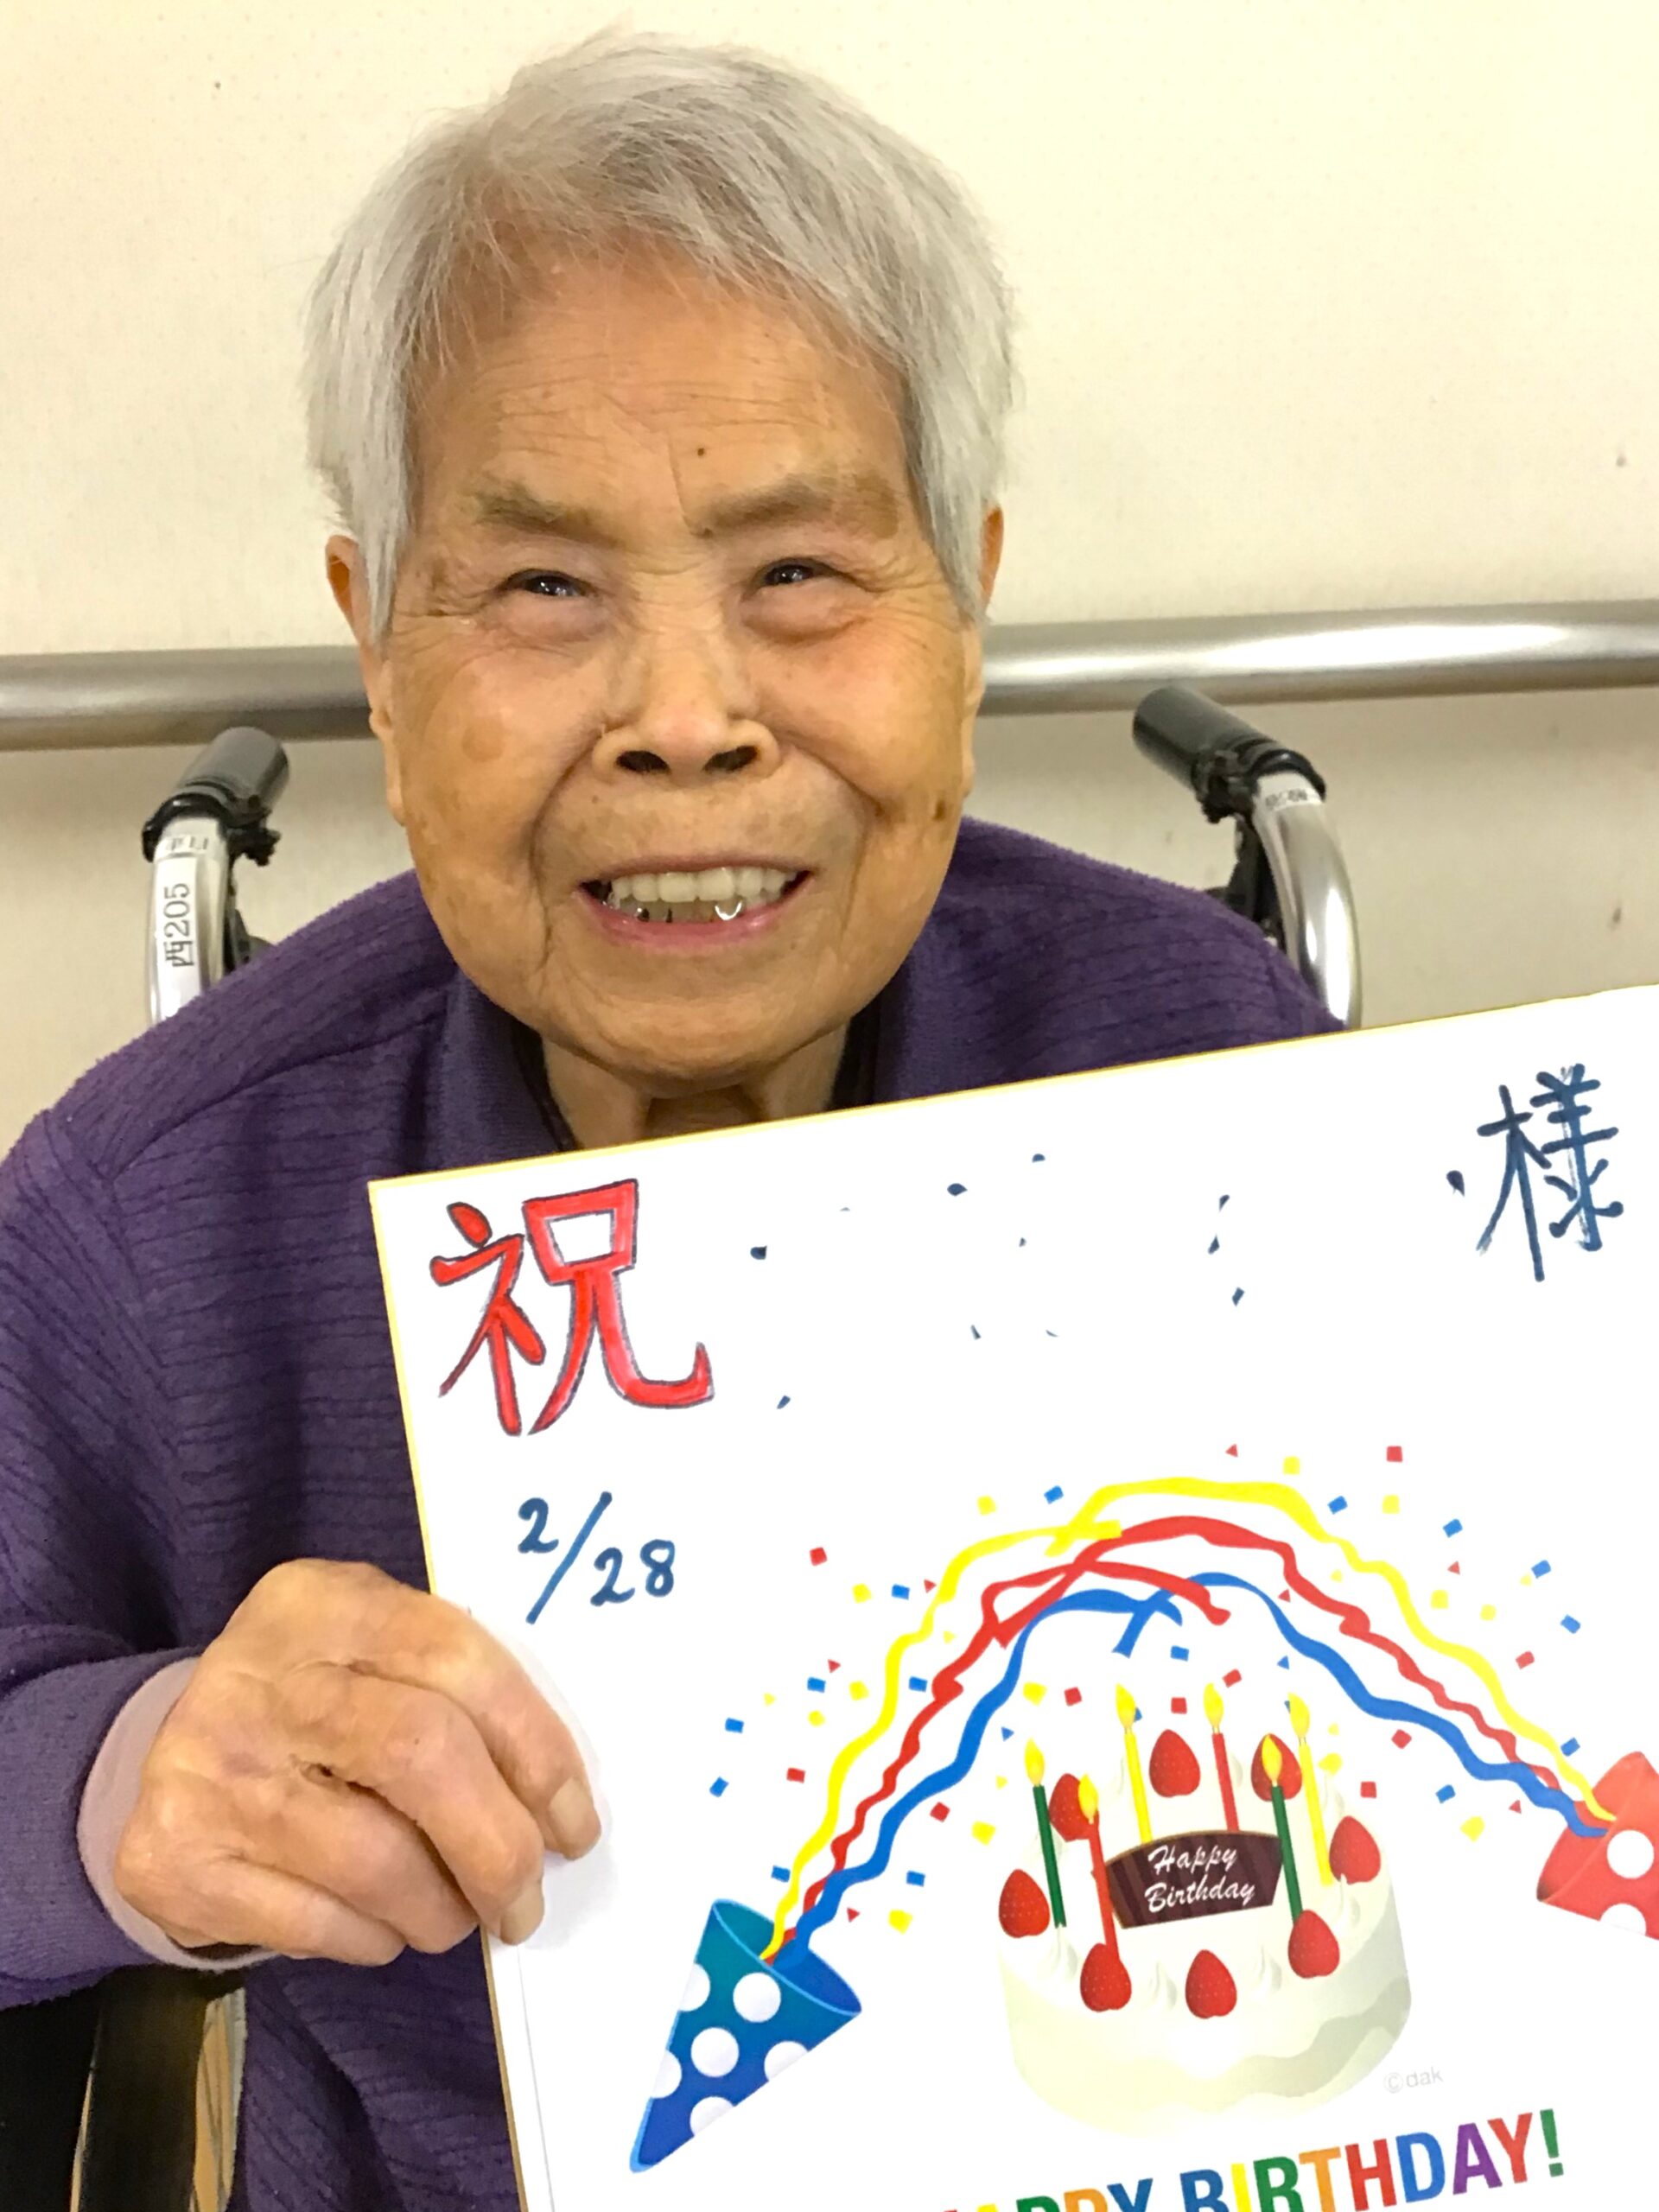 西205
祝 様
2/28
Happy
Birthday
©dak
HAPPY BIRTHDAY!